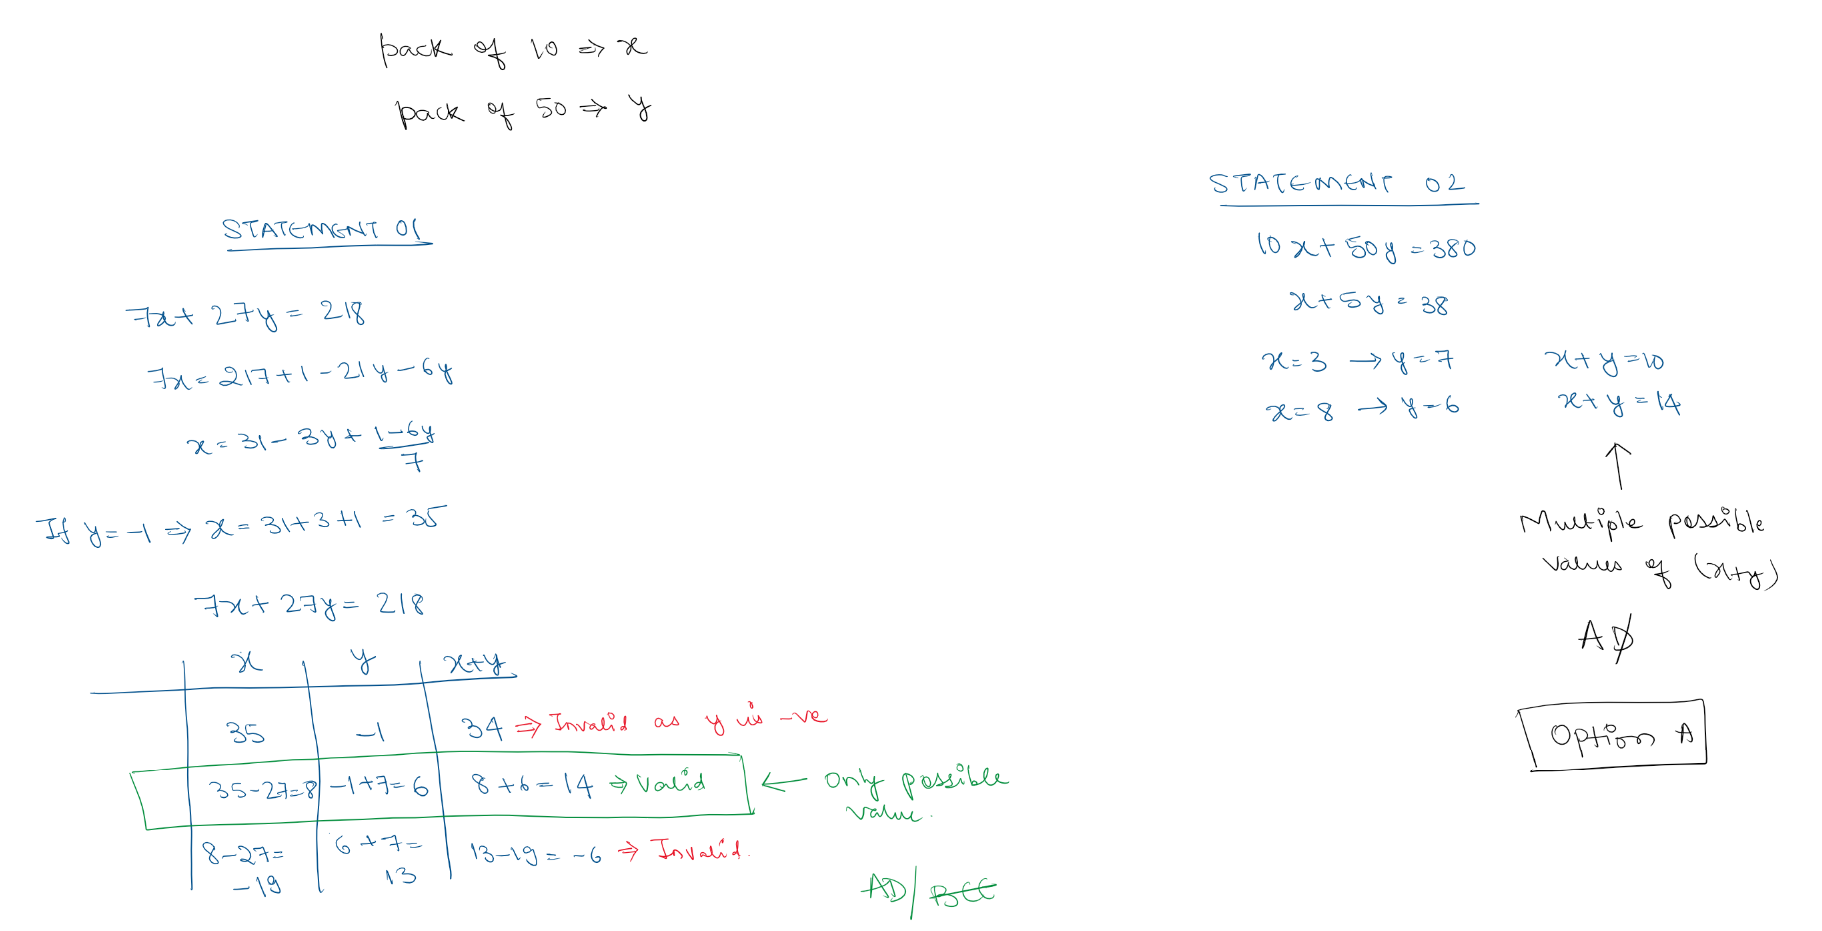 pack of 10 ⇒ x
pack of 50 ⇒ y
STATEMENT 01
7x + 27y = 218
7x = 217 + 1 - 21y - 6y
x = 31 - 3y + (1-6y)/7
If y = -1 ⇒ x = 31 + 3 + 1 = 35
7x + 27y = 218
x y x+y
35 -1 34 ⇒ Invalid as y is -ve
35-27=8 -1+7=6 8+6=14 ⇒ Valid ← Only possible value.
8-27=-19 6+7=13 13-19=-6 ⇒ Invalid.
AD/BCE
STATEMENT 02
10x + 50y = 380
x + 5y = 38
x = 3 → y = 7 x + y = 10
x = 8 → y = 6 x + y = 14
↑
Multiple possible
values of (x+y)
AD
Option A